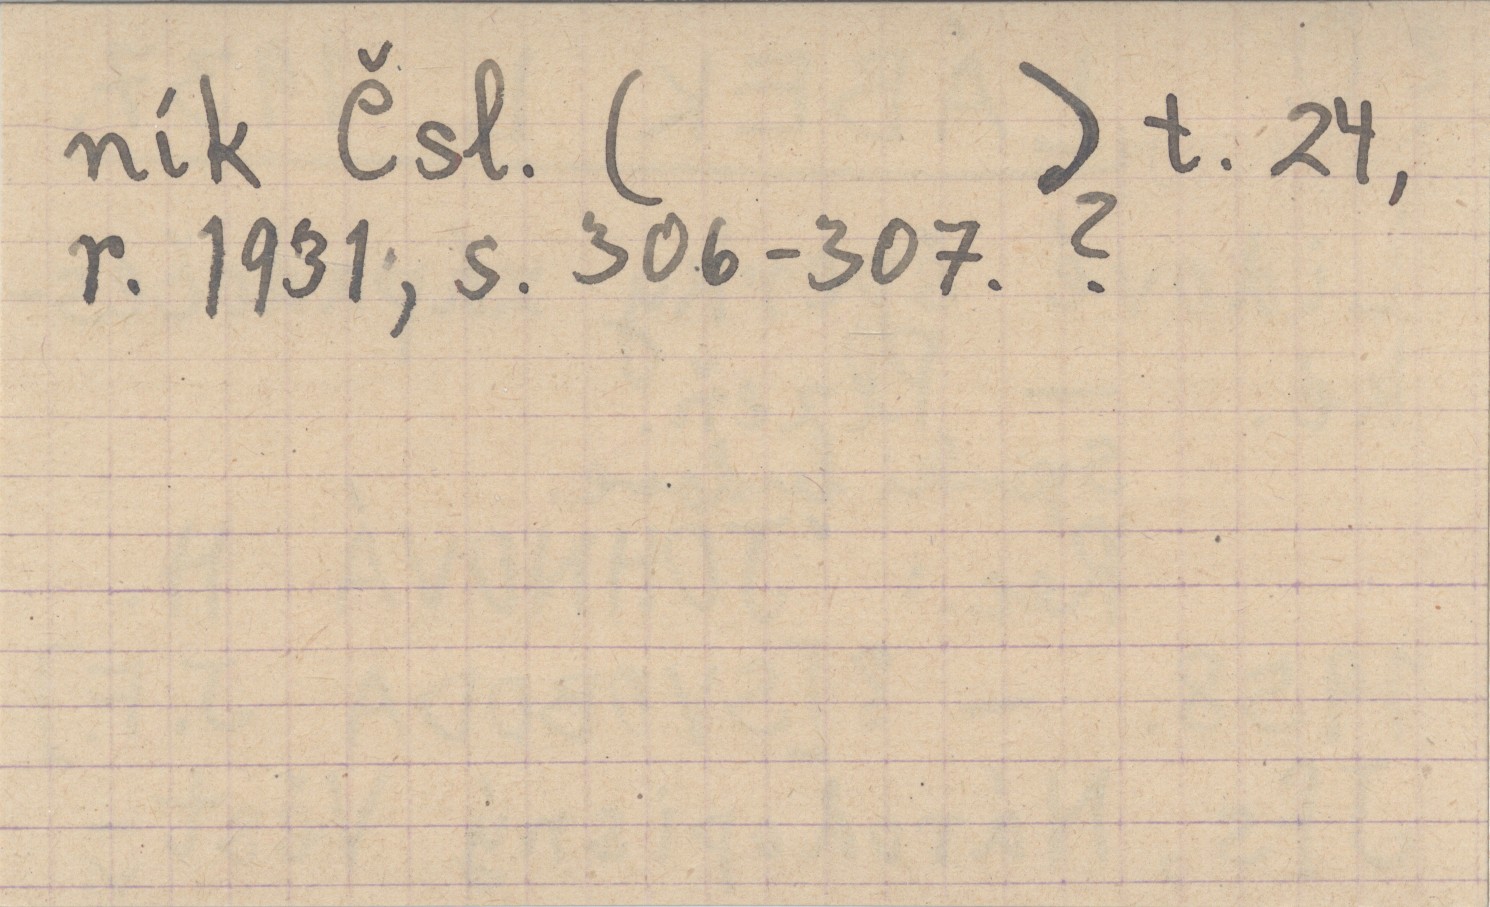 ník Čsl. (          ) t. 24,
r. 1931, s. 306-307. ?